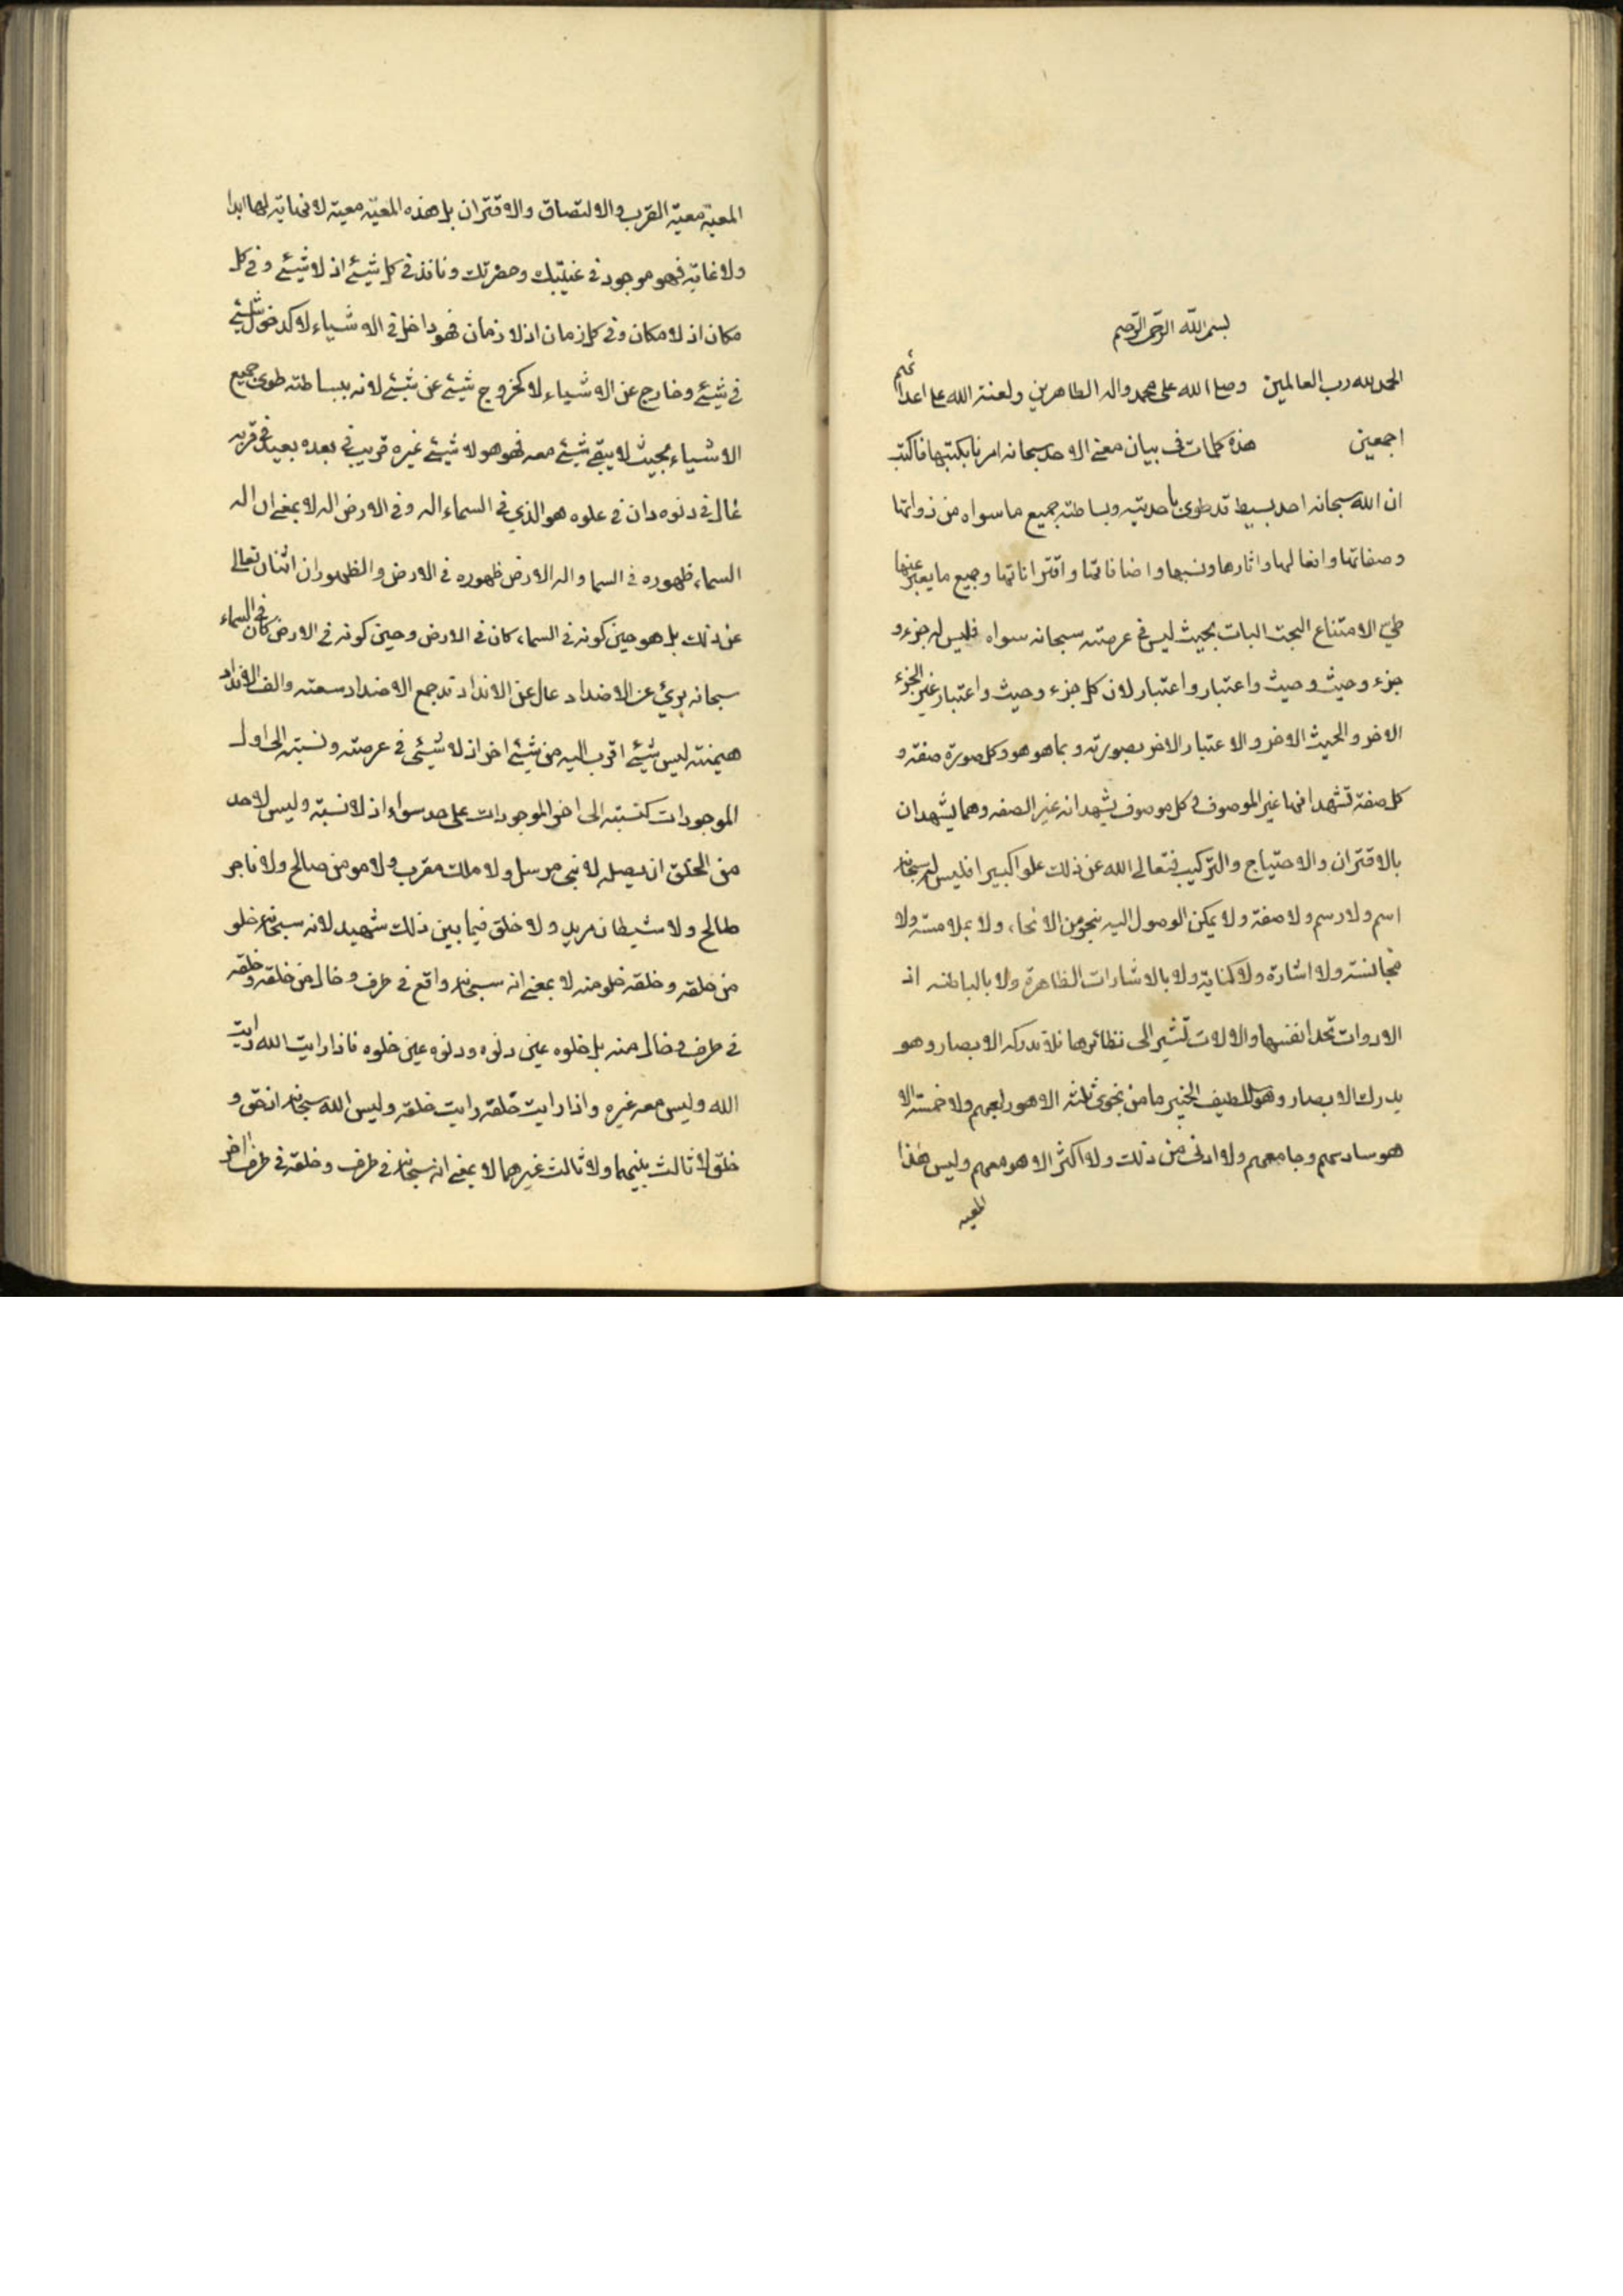 بسم الله الرحمن الرحيم
الحمد لله رب العالمين وصلى الله على محمد واله الطاهرين ولعنة الله على اعدائهم
اجمعين هذه كلمات في بيان معنى الاحد سبحانه امرنا بكتبها فاكتب
ان الله سبحانه احد بسيط قد طوى باحديته وبساطته جميع ما سواه من ذواتها
وصفاتها وافعالها واثارها ونسبها واضافاتها واقتراناتها وجميع ما يعبر عنها
طي الامتناع البحت البات بحيث ليس في عرصته سبحانه سواه فليس له جزء و
جزء وحيث وحيث واعتبار واعتبار لان كل جزء وحيث واعتبار غير الجزء
الاخر والحيث الاخر والاعتبار الاخر بصورته وبما هو هو وكل صورة صفة و
كل صفة تشهد انها غير الموصوف وكل موصوف يشهد انه غير الصفه وهما يشهدان
بالاقتران والاحتياج والتركيب فتعالى الله عن ذلك علوا كبيرا فليس له سبحانه
اسم ولا رسم ولا صفة ولا يمكن الوصول اليه بنحو من الانحاء ولا بملامسة ولا
مجانسة ولا اشارة ولا كناية ولا بالاشارات الظاهرة ولا بالباطنه اذ
الادوات تحد انفسها والالات تشير الى نظائرها فلا تدركه الابصار وهو
يدرك الابصار وهو اللطيف الخبير ما من نجوى ثلثه الا هو رابعهم ولا خمسة الا
هو سادسهم وجامعهم ولا ادنى من ذلك ولا اكثر الا هو معهم وليس هذا
المعيه
المعية معية القرب والالتصاق والاقتران بل هذه المعية معية لا نهاية لها ابدا
ولا غاية فهو موجود في غيبتك وحضرتك ونافذ في كل شيئ اذ لا شيئ وفي كل
مكان اذ لا مكان وفي كل زمان اذ لا زمان فهو داخل في الاشياء لا كدخول شيئ
في شيئ وخارج عن الاشياء لا كخروج شيئ عن شيئ لانه ببساطته طوى جميع
الاشياء بحيث لا يبقى شيئ معه فهو هو لا شيئ غيره قريب في بعده بعيد في قربه
عال في دنوه دان في علوه هو الذي في السماء اله وفي الارض اله لا بمعنى ان اله
السماء ظهوره في السما واله الارض ظهوره في الارض والظهوران اثنان تعالى
عن ذلك بل هو حين كونه في السماء كان في الارض وحين كونه في الارض كان في السماء
سبحانه بريئ عن الاضداد عال عن الانداد قد جمع الاضداد سعته والف الانداد
هيمنته ليس شيئ اقرب اليه من شيئ اخر اذ لا شيئ في عرصته ونسبته الى اول
الموجودات كنسبته الى اخر الموجودات على حد سواء اذ لا نسبة وليس لاحد
من الخلق ان يصله لا نبي مرسل ولا ملك مقرب ولا مومن صالح ولا فاجر
طالح ولا شيطان مريد ولا خلق فيما بين ذلك شهيد لانه سبحانه خلو
من خلقه وخلقه خلو منه لا بمعنى انه سبحانه واقع في طرف وخال من خلقه وخلقه
في طرف وخال منه بل خلوه عين دنوه ودنوه عين خلوه فاذا رايت الله رايت
الله وليس معه غيره واذا رايت خلقه رايت خلقه وليس الله سبحانه اذ حق و
خلق لا ثالث بينهما ولا ثالث غيرهما لا بمعنى انه سبحانه في طرف وخلقه في طرف اخر